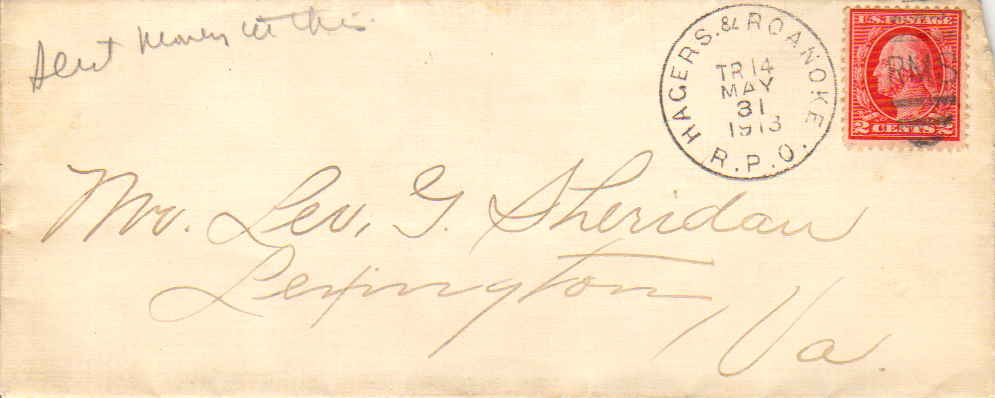 Sent money in this
HAGERS. & ROANOKE
TR 14
MAY
31
1913
R.P.O.
U.S. POSTAGE
2 CENTS 2
RMS
Mr. Leo, G. Sheridan
Lexington, Va